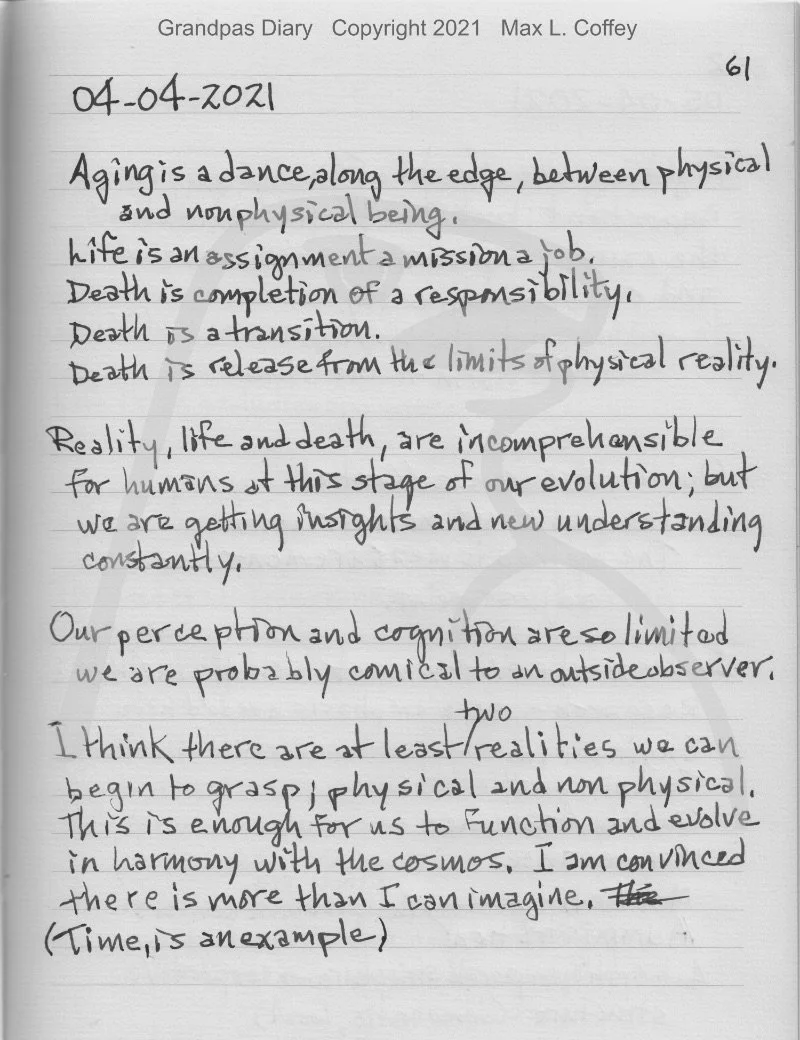 Grandpas Diary Copyright 2021 Max L. Coffey
61
04-04-2021
Aging is a dance, along the edge, between physical
and nonphysical being.
Life is an assignment a mission a job.
Death is completion of a responsibility.
Death is a transition.
Death is release from the limits of physical reality.
Reality, life and death, are incomprehensible
for humans at this stage of our evolution; but
we are getting insights and new understanding
constantly.
Our perception and cognition are so limited
we are probably comical to an outside observer.
two
I think there are at least/realities we can
begin to grasp; physical and non physical.
This is enough for us to Function and evolve
in harmony with the cosmos. I am convinced
there is more than I can imagine. The
(Time, is an example)